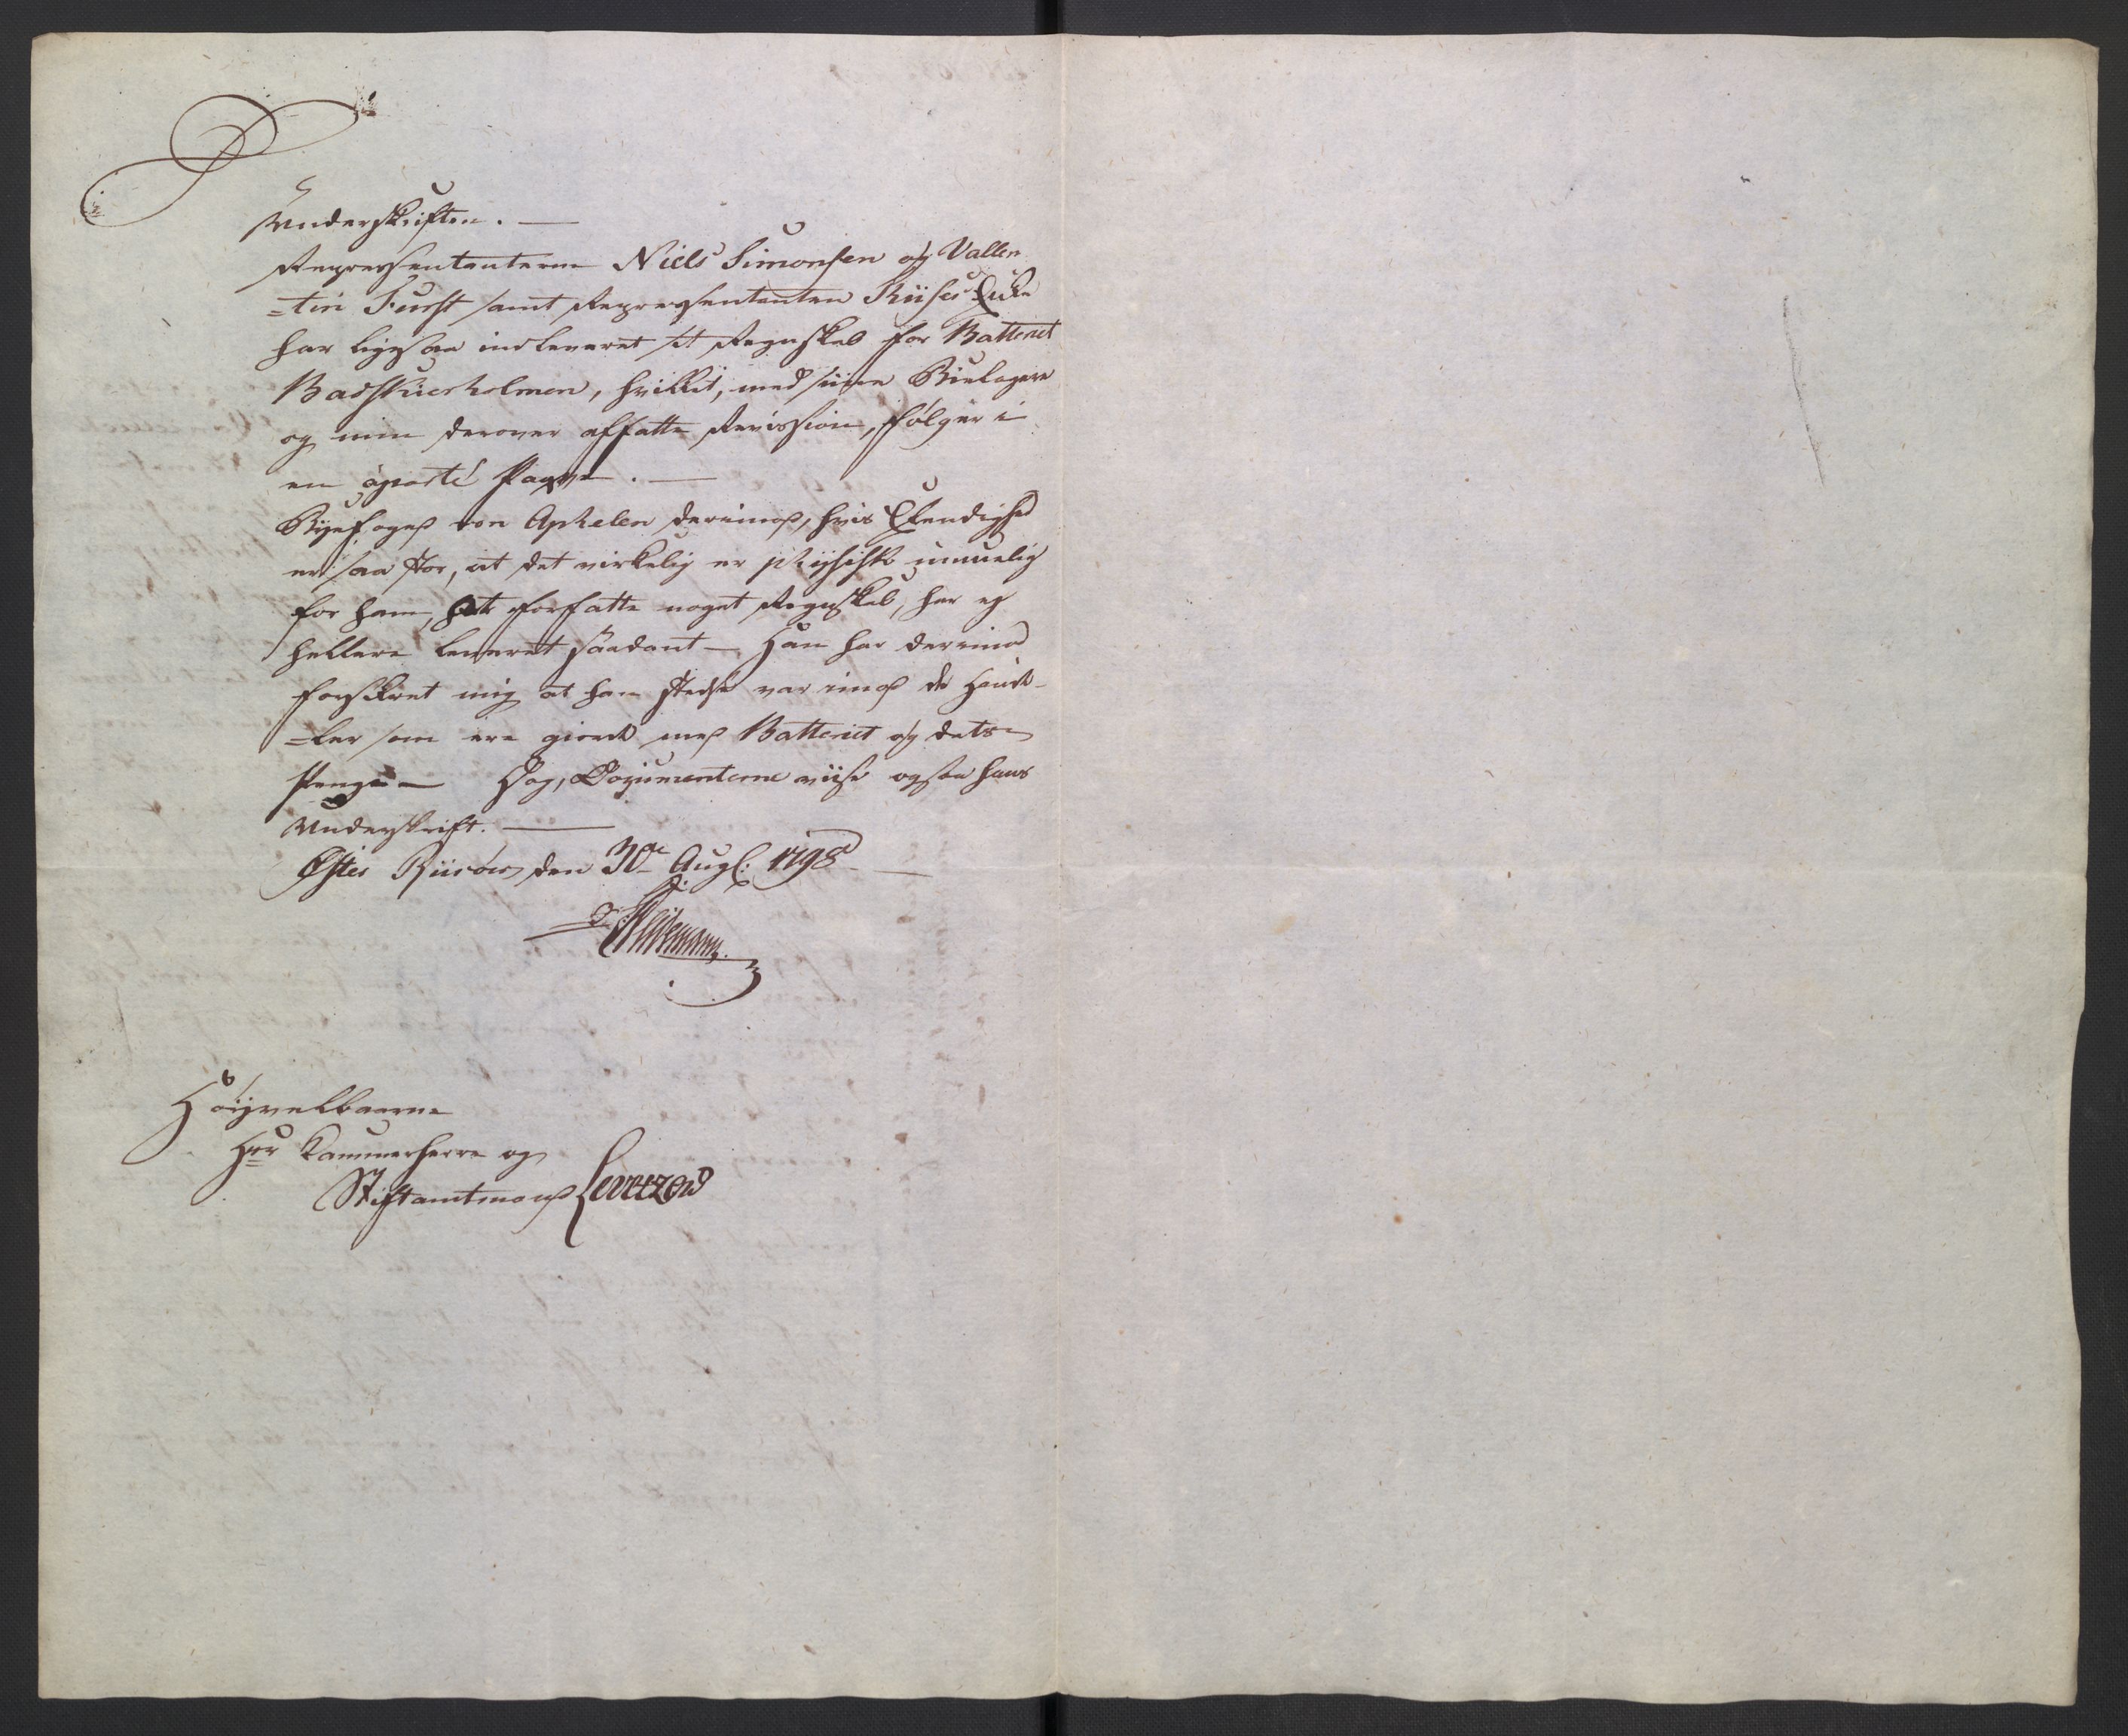 Underskriften. —
Repressentanterne Niels Simonsen og Vallen
=tin Furst samt Repressentanten Riises Enke
har ligesaa indleveret sit Regnskab for Batteriet
Badskierholmen, hvilket, med siine Bielagere
og min derover affatte Revission, følger i
en aparté Paqve. —
Byefoged von Aphelen derimod, hvis Elendighed
er saa stor, at det virkelig er physisk umuelig
for ham, at forfatte noget Regnskab, har ej
hellere leveret saadant — Han har derimod
forsikret mig at han stedse var imod de Hand-
=ler som ere giordt med Batteriet og dets
Penge — Dog, Documenterne viise ogsaa hans
Underskrift. —
Øster Riisøer den 30te Aug: 1798. —
Høyvelbaarne
Herr Kammerherre og
Stiftamtmand Levetzow